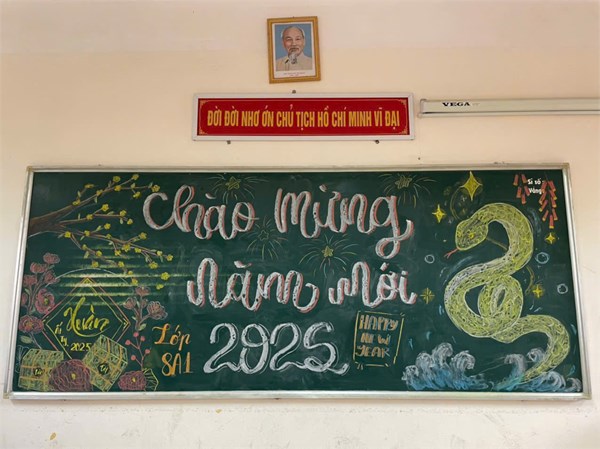 ĐỜI ĐỜI NHỚ ƠN CHỦ TỊCH HỒ CHÍ MINH VĨ ĐẠI
VEGA
Chào mừng
năm mới
2025
HAPPY
NEW
YEAR
Lớp
8A1
Xuân
Ất
tỵ
2025
Tết
Tết
Sĩ số:
Vắng: